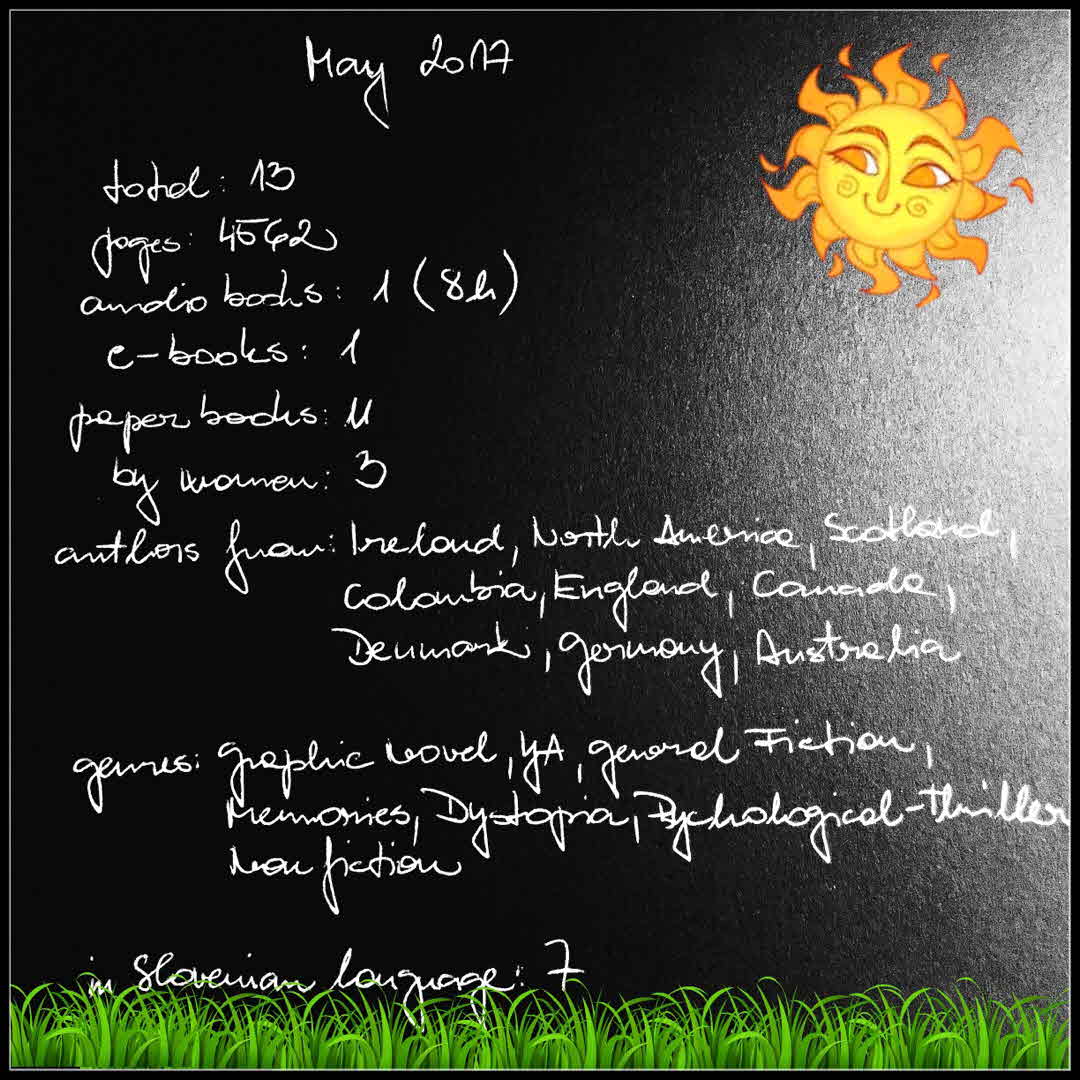 May 2017
total: 13
pages: 4562
audio books: 1 (8h)
e-books: 1
paper books: 11
by women: 3
authors from: Ireland, North America, Scotland,
Colombia, England, Canada,
Denmark, Germany, Australia
genres: graphic novel, YA, general Fiction,
Memories, Dystopia, Psychological-Thriller
Non fiction
in Slovenian language: 7